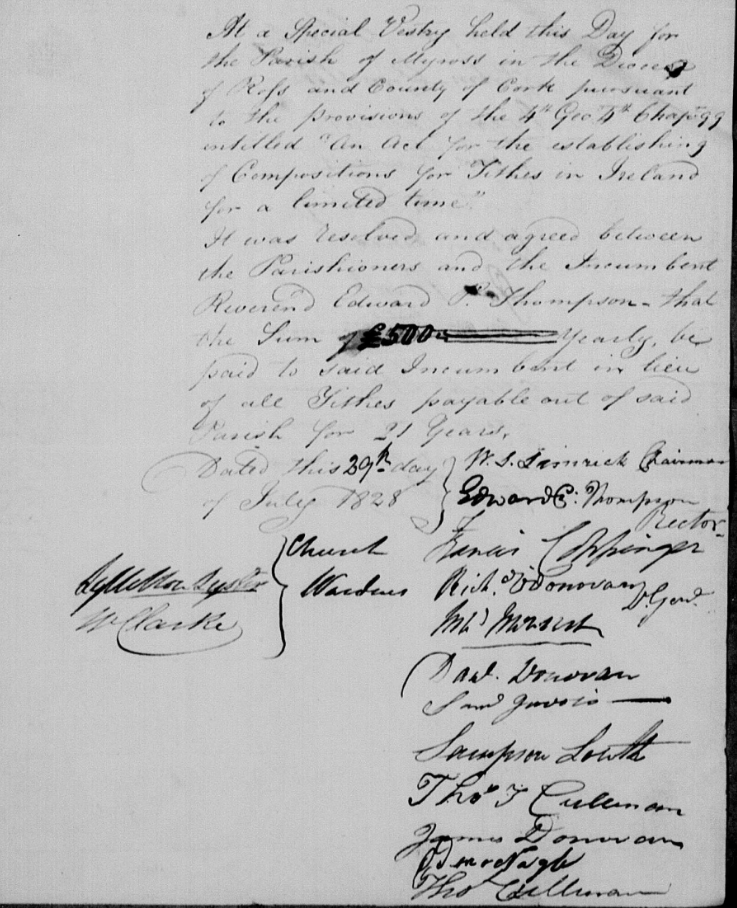 At a Special Vestry held this Day for
the Parish of Myross in the Diocese
of Ross and County of Cork pursuant
to the provisions of the 4th Geo 4th Chapr 99
entitled "An Act for the establishing
of Compositions for Tithes in Ireland
for a limited time"
It was resolved and agreed between
the Parishioners and the Incumbent
Reverend Edward P. Thompson - that
the Sum of £500 Yearly, be
paid to said Incumbent in lieu
of all Tithes payable out of said
Parish for 21 Years,
Dated this 29th day
of July 1828
W. S. Limrick Chairman
Edward Thompson
Rector
Church
Wardens
W Clarke
Francis Coppinger
Richd O'Donovan
Danl. Donovan
Saml Jervois
Sampson Louth
Thos F Cullinan
James Donovan
Thos Cullinan